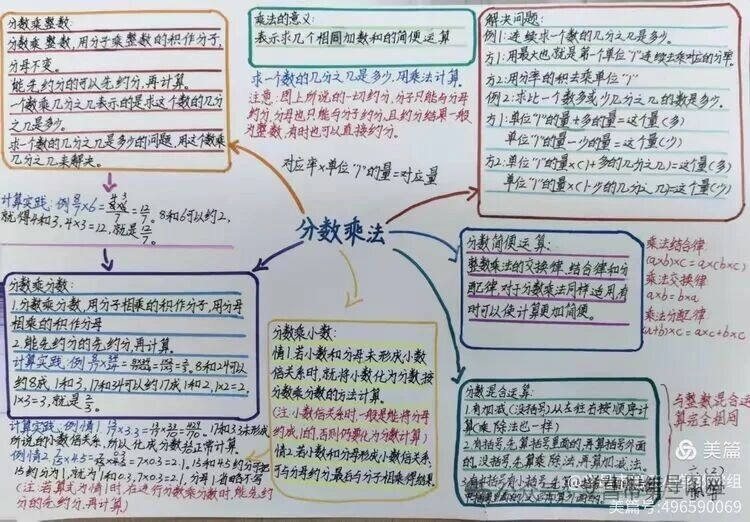 分数乘整数:
分数乘整数,用分子乘整数的积作分子,
分母不变。
能先约分的可以先约分,再计算。
一个数乘几分之几表示的是求这个数的几分
之几是多少。
求一个数的几分之几是多少的问题,用这个数乘
几分之几来解决。
乘法的意义:
表示求几个相同加数和的简便运算
求一个数的几分之几是多少,用乘法计算。
注意:图上所说的一切约分,分子只能与分母
约分,分母也只能与分子约分,且约分结果一般
为整数,有时也可以直接约分。
对应率×单位"1"的量=对应量
解决问题:
例1:连续求一个数的几分之几是多少。
方1:用最大也就是第一个单位"1"连续去乘对应的分率。
方2:用分率的积去乘单位"1"
例2:求比一个数多或少几分之几的数是多少。
方1:单位"1"的量+多的量=这个量(多)
单位"1"的量-少的量=这个量(少)
方2:单位"1"的量×(1+多的几分之几)=这个量(多)
单位"1"的量×(1-少的几分之几)=这个量(少)
计算实践:例
就得4和3,4×3=12,就是12/7。8和6可以约2,
分数乘法
分数乘分数:
1.分数乘分数,用分子相乘的积作分子,用分母
相乘的积作分母
2.能先约分的先约分,再计算。
计算实践:例 8和24可以
约8成1和3,17和34可以约17成1和2,1×2=2,
1×3=3,就是2/3。
分数简便运算:
整数乘法的交换律、结合律和分
配律,对于分数乘法同样适用,有
时可以使计算更加简便。
乘法结合律
(a×b)×c=a×(b×c)
乘法交换律
a×b=b×a
乘法分配律
(a+b)×c=a×c+b×c
分数乘小数:
情1.若小数和分母未形成小数
倍关系时,就将小数化为分数,按
分数乘分数的方法计算。
(注:小数倍关系时,一般是能将分母
约成1的,否则仍要化为分数计算)
情2.若小数和分母形成小数倍关系,
可与分母约分,最后与分子相乘得结果
计算实践:例情1. 17和3.3未形成
所说的小数倍关系,所以化成分数后正常计算。
例情2. =7×0.3=2.1,15和4.5约分,把
15约分为1,就为1和0.3,7×0.3=2.1,分母1省略不写
(注:若算式为情1时,在进行分数乘分数时,能先约
分的先约分,再计算)
分数混合运算:
1.有加减(没括号)从左往右按顺序计
算(乘、除法也一样)
2.有括号,先算括号里面的,再算括号外面
的,没括号,先算乘除法,再算加减法。
与整数混合运
算完全相同
六(2)
美篇
美篇号:496590069